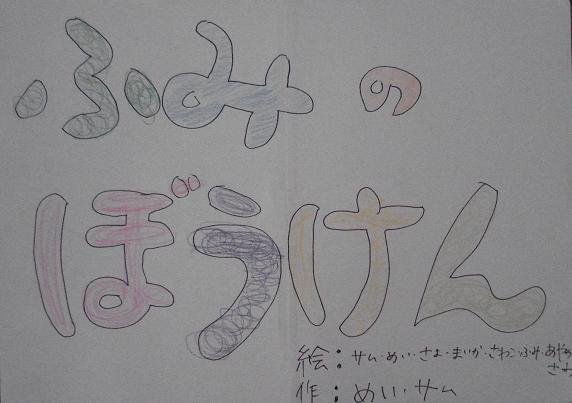 ふみの
ぼうけん
絵:サム・めい・さよ・まいか・さわこ・ふみ・あやね
さわ
作:めい・サム